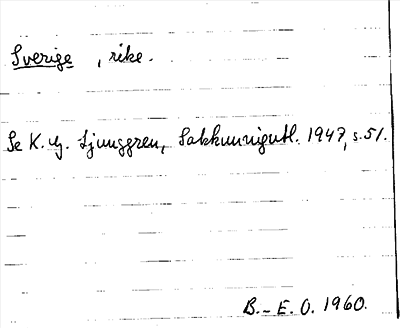 Sverige, rike.
Se K. G. Ljunggren, Sakkunnigutl. 1947, s. 51.
B.-E. O. 1960.